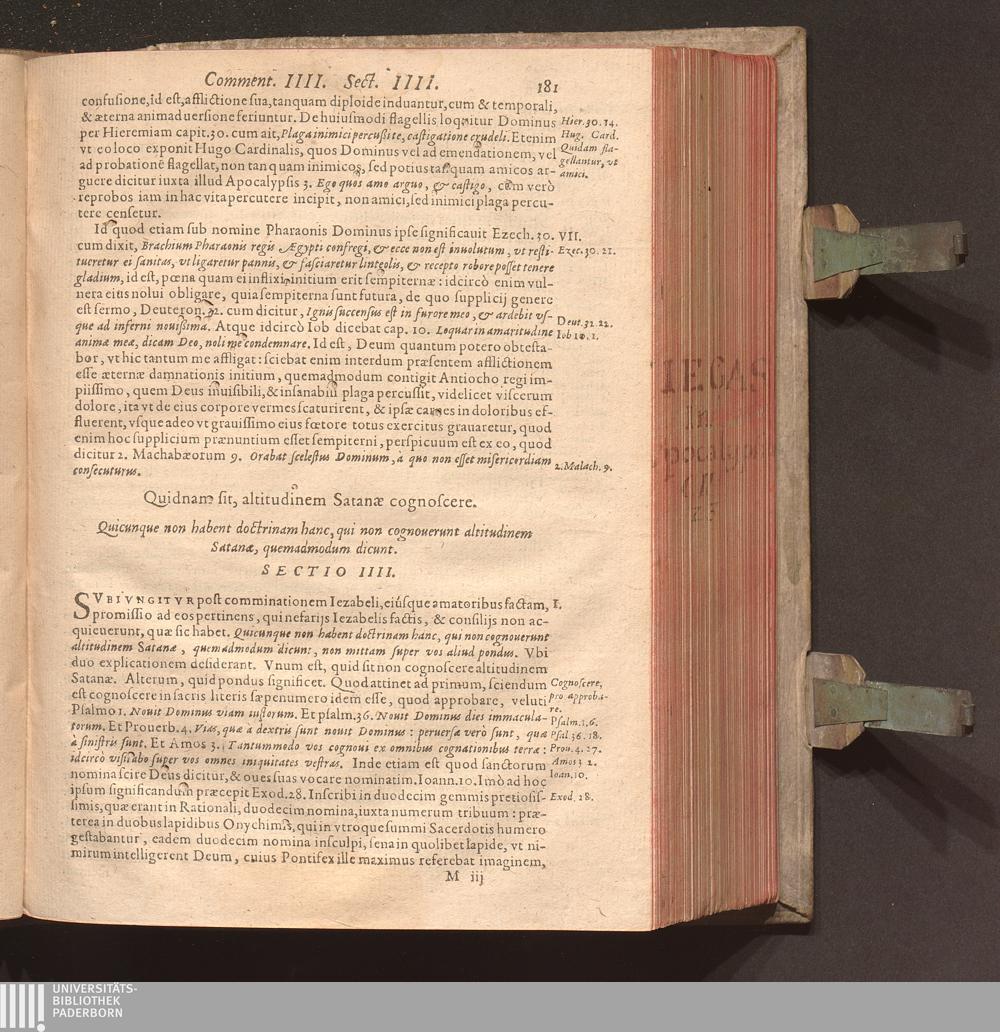 Comment. IIII. Sect. IIII. 181
confusione, id est, afflictione sua, tanquam diploide induantur, cum & temporali,
& æterna animaduersione feriuntur. De huiusmodi flagellis loquitur Dominus
per Hieremiam capit. 30. cum ait, Plaga inimici percußi te, castigatione crudeli. Etenim
vt eo loco exponit Hugo Cardinalis, quos Dominus vel ad emendationem, vel
ad probationē flagellat, non tanquam inimicos, sed potius tanquam amicos ar-
guere dicitur iuxta illud Apocalypsis 3. Ego quos amo arguo, & castigo, cùm verò
reprobos iam in hac vita percutere incipit, non amici, sed inimici plaga percu-
tere censetur.
Hier. 30. 14.
Hug. Card.
Quidam fla-
gellantur, vt
amici.
Id quod etiam sub nomine Pharaonis Dominus ipse significauit Ezech. 30. VII.
cum dixit, Brachium Pharaonis regis Ægypti confregi, & ecce non est inuolutum, vt resti-
tueretur ei sanitas, vt ligaretur pannis, & fasciaretur linteolis, & recepto robore posset tenere
gladium, id est, pœna quam ei inflixi, initium erit sempiternæ: idcircò enim vul-
nera eius nolui obligare, quia sempiterna sunt futura, de quo supplicij genere
est sermo, Deuteron. 32. cum dicitur, Ignis succensus est in furore meo, & ardebit vs-
que ad inferni nouißima. Atque idcircò Iob dicebat cap. 10. Loquar in amaritudine
animæ meæ, dicam Deo, noli me condemnare. Id est, Deum quantum potero obtesta-
bor, vt hic tantum me affligat: sciebat enim interdum præsentem afflictionem
esse æternæ damnationis initium, quemadmodum contigit Antiocho regi im-
piissimo, quem Deus inuisibili, & insanabili plaga percussit, videlicet viscerum
dolore, ita vt de eius corpore vermes scaturirent, & ipsæ carnes in doloribus ef-
fluerent, vsque adeo vt grauissimo eius fœtore totus exercitus grauaretur, quod
enim hoc supplicium prænuntium esset sempiterni, perspicuum est ex eo, quod
dicitur 2. Machabæorum 9. Orabat scelestus Dominum, à quo non esset misericordiam
consecuturus.
Ezec. 30. 21.
Deut. 32. 22.
Iob 10. 1.
2. Malach. 9.
Quidnam sit, altitudinem Satanæ cognoscere.
Quicunque non habent doctrinam hanc, qui non cognouerunt altitudinem
Satanæ, quemadmodum dicunt.
SECTIO IIII.
SVBIVNGITVR post comminationem Iezabeli, eiúsque amatoribus factam, I.
promissio ad eos pertinens, qui nefarijs Iezabelis factis, & consilijs non ac-
quieuerunt, quæ sic habet. Quicunque non habent doctrinam hanc, qui non cognouerunt
altitudinem Satanæ, quemadmodum dicunt, non mittam super vos aliud pondus. Vbi
duo explicationem desiderant. Vnum est, quid sit non cognoscere altitudinem
Satanæ. Alterum, quid pondus significet. Quod attinet ad primum, sciendum
est cognoscere in sacris literis sæpenumero idem esse, quod approbare, veluti
Psalmo 1. Nouit Dominus viam iustorum. Et psalm. 36. Nouit Dominus dies immacula-
torum. Et Prouerb. 4. Vias, quæ à dextris sunt nouit Dominus: peruersæ verò sunt, quæ
à sinistris sunt. Et Amos 3. Tantummodo vos cognoui ex omnibus cognationibus terræ:
idcircò visitabo super vos omnes iniquitates vestras. Inde etiam est quod sanctorum
nomina scire Deus dicitur, & oues suas vocare nominatim. Ioann. 10. Imò ad hoc
ipsum significandum præcepit Exod. 28. Inscribi in duodecim gemmis pretiosis-
simis, quæ erant in Rationali, duodecim nomina, iuxta numerum tribuum: præ-
terea in duobus lapidibus Onychinis, qui in vtroque summi Sacerdotis humero
gestabantur, eadem duodecim nomina insculpi, sena in quolibet lapide, vt ni-
mirum intelligerent Deum, cuius Pontifex ille maximus referebat imaginem,
Cognoscere,
pro approba-
re.
Psalm. 1. 6.
Psal. 36. 18.
Prou. 4. 27.
Amos 3 2.
Ioan. 10.
Exod. 28.
M iij
VIEGAS
In
Apocalyp
UNIVERSITÄTS-
BIBLIOTHEK
PADERBORN